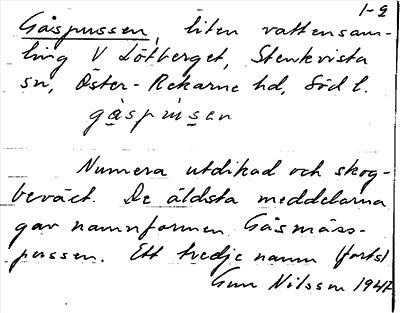 1-2
Gåspussen, liten vattensam-
ling V Lötberget, Stenkvista
sn, Öster-Rekarne hd, Söd l.
gåspusen
Numera utdikad och skog-
beväxt. De äldsta meddelarna
gav namnformen Gåsmäss-
pussen. Ett tredje namn (forts)
Gun Nilsson 1947